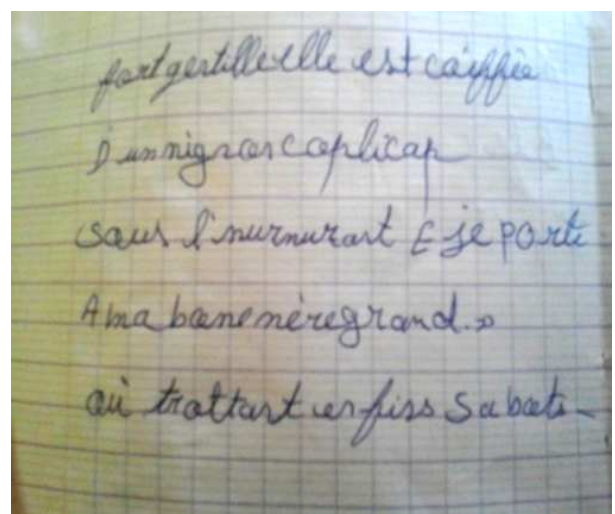 fort gentille elle est coiffée
D'un nigros caplicap
sous l'murnurant E je porte
A ma bone nèregrand.»
où trottant en fiss sabots-